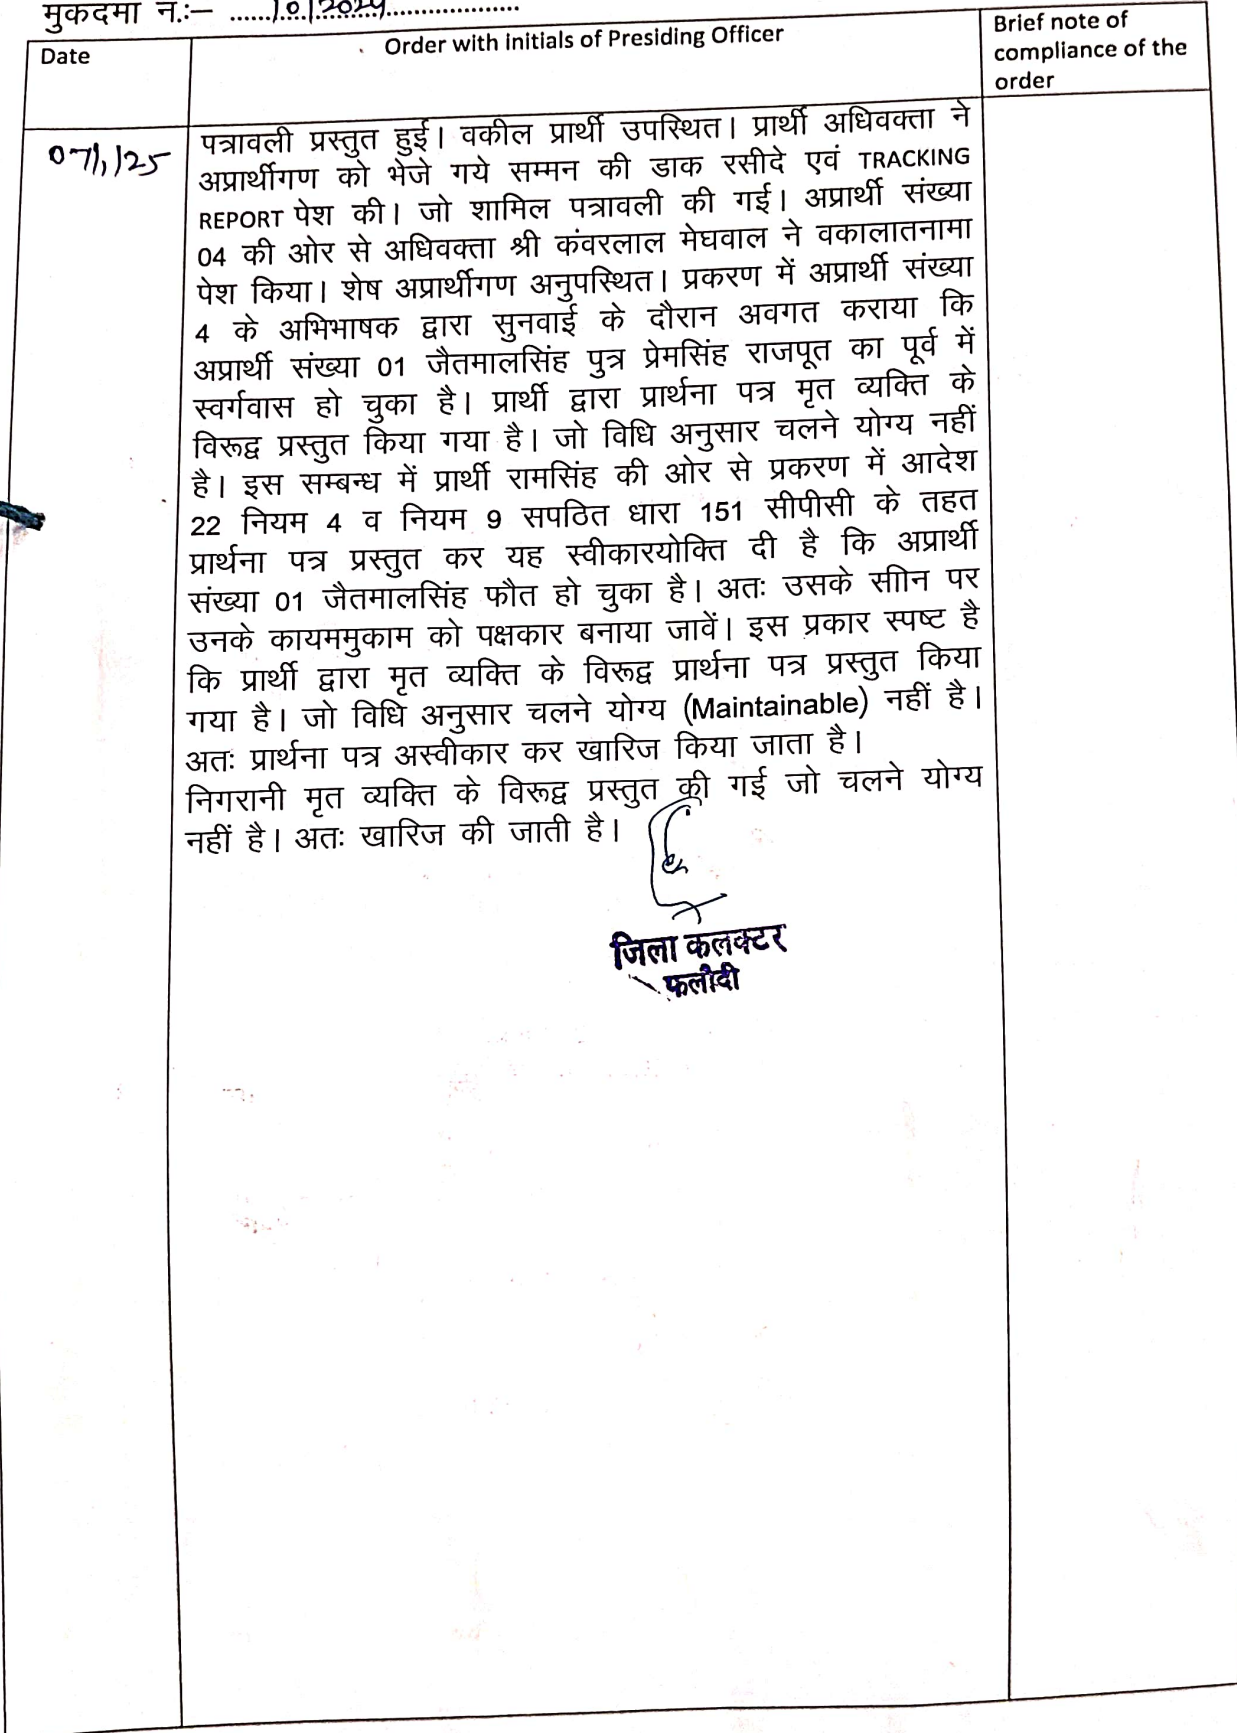 मुकदमा न.:– ......10/2024....................
Date
Order with initials of Presiding Officer
Brief note of
compliance of the
order
07/1/25
पत्रावली प्रस्तुत हुई। वकील प्रार्थी उपस्थित। प्रार्थी अधिवक्ता ने
अप्रार्थीगण को भेजे गये सम्मन की डाक रसीदे एवं TRACKING
REPORT पेश की। जो शामिल पत्रावली की गई। अप्रार्थी संख्या
04 की ओर से अधिवक्ता श्री कंवरलाल मेघवाल ने वकालातनामा
पेश किया। शेष अप्रार्थीगण अनुपस्थित। प्रकरण में अप्रार्थी संख्या
4 के अभिभाषक द्वारा सुनवाई के दौरान अवगत कराया कि
अप्रार्थी संख्या 01 जैतमालसिंह पुत्र प्रेमसिंह राजपूत का पूर्व में
स्वर्गवास हो चुका है। प्रार्थी द्वारा प्रार्थना पत्र मृत व्यक्ति के
विरूद्व प्रस्तुत किया गया है। जो विधि अनुसार चलने योग्य नहीं
है। इस सम्बन्ध में प्रार्थी रामसिंह की ओर से प्रकरण में आदेश
22 नियम 4 व नियम 9 सपठित धारा 151 सीपीसी के तहत
प्रार्थना पत्र प्रस्तुत कर यह स्वीकारयोक्ति दी है कि अप्रार्थी
संख्या 01 जैतमालसिंह फौत हो चुका है। अतः उसके साीन पर
उनके कायममुकाम को पक्षकार बनाया जावें। इस प्रकार स्पष्ट है
कि प्रार्थी द्वारा मृत व्यक्ति के विरूद्व प्रार्थना पत्र प्रस्तुत किया
गया है। जो विधि अनुसार चलने योग्य (Maintainable) नहीं है।
अतः प्रार्थना पत्र अस्वीकार कर खारिज किया जाता है।
निगरानी मृत व्यक्ति के विरूद्व प्रस्तुत की गई जो चलने योग्य
नहीं है। अतः खारिज की जाती है।
जिला कलक्टर
फलौदी